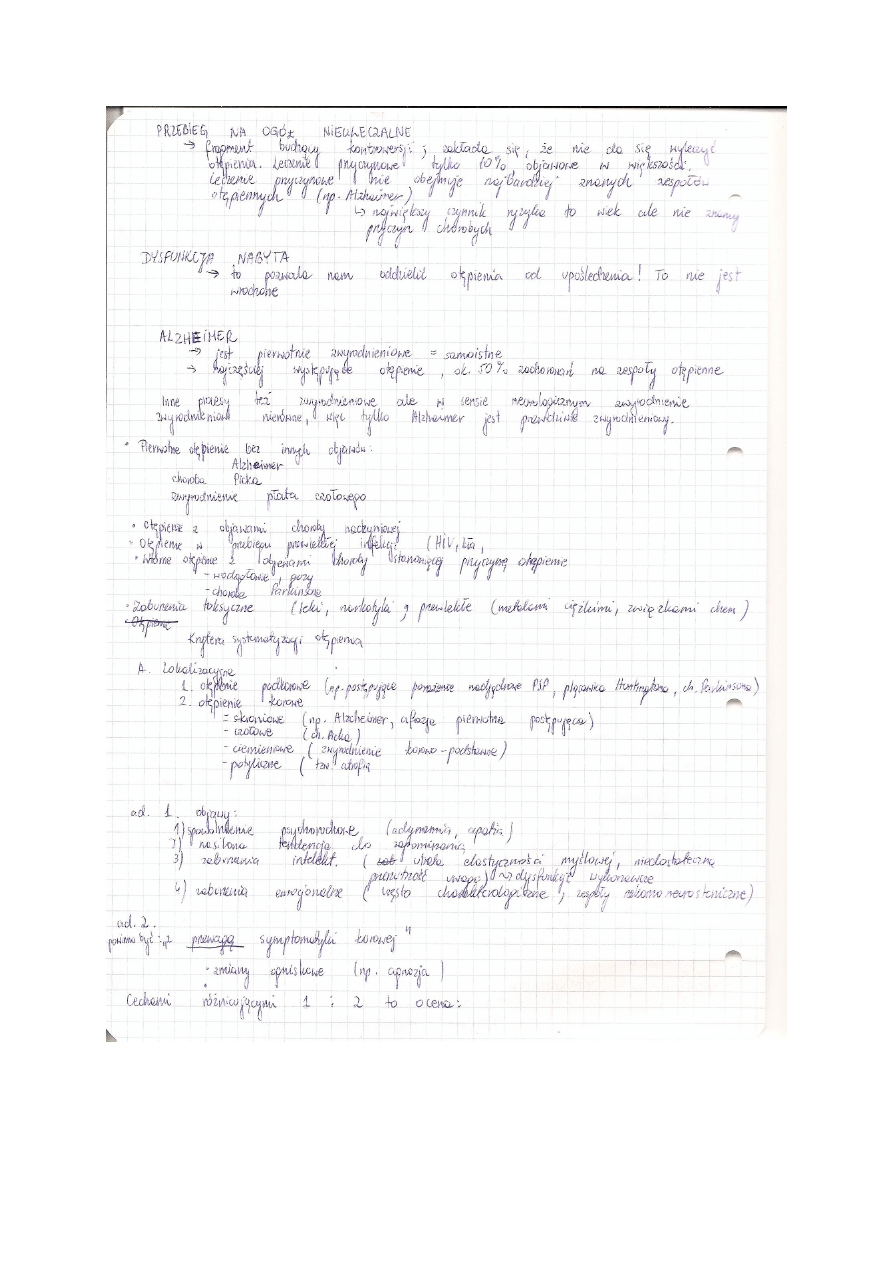 PRZEBIEG NA OGÓŁ NIEULECZALNE
→ fragment budzący kontrowersje; zakłada się, że nie da się wyleczyć
otępienia. Leczenie przyczynowe tylko 10% objawowe w większości.
Leczenie przyczynowe nie obejmuje najbardziej znanych zespołów
otępiennych (np. Alzheimer)
↳ największy czynnik ryzyka to wiek ale nie znamy
przyczyn chorobych
DYSFUNKCJA NABYTA
→ to pozwala nam oddzielić otępienia od upośledzenia! To nie jest
wrodzone
ALZHEIMER
→ jest pierwotnie zwyrodnieniowe = samoistne
→ najczęściej występujące otępienie, ok. 50% zachorowań na zespoły otępienne
Inne procesy też zwyrodnieniowe ale w sensie neurologicznym zwyrodnienie
zwyrodnieniowi nierówne, więc tylko Alzheimer jest prawdziwie zwyrodnieniowy.
• Pierwotne otępienie bez innych objawów:
Alzheimer
choroba Picka
zwyrodnienie płata czołowego
• Otępienie z objawami choroby naczyniowej
- Otępienie w przebiegu przewlekłej infekcji (HIV, kiła,
• Wtórne otępienie z objawami choroby stanowiącej przyczynę otępienie
- wodogłowie, guzy
- choroba Parkinsona
• Zaburzenia toksyczne (leki, narkotyki; przewlekłe (metalami ciężkimi, związkami chem)
Otępienie
Kryteria systematyzacji otępienia
A. Lokalizacyjne
1. otępienie podkorowe (np. postępujące porażenie nadjądrowe PSP, pląsawica Huntingtona, ch. Parkinsona)
2. otępienie korowe
- skroniowe (np. Alzheimer, afazja pierwotna postępująca)
- czołowe (ch. Picka)
- ciemieniowe (zwyrodnienie korowo-podstawne)
- potyliczne (tzw atrofia
ad. 1. objawy:
1) spowolnienie psychoruchowe (adynamia, apatia)
2) nasilona tendencja do zapominania
3) zaburzenia intelekt. ( utrata elastyczności myślowej, niedostateczna
przerzutność uwagi) ~> dysfunkcje wykonawcze
4) zaburzenia emocjonalne (często charakterologiczne, zespoły rzekomonerwosteniczne)
ad. 2.
powinno być: „z przewagą symptomatyki korowej"
• zmiany ogniskowe (np. agnozja)
Cechami różnicującymi 1 i 2 to ocena: